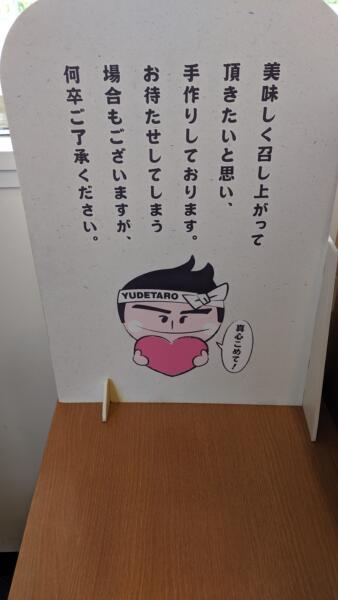 美味しく召し上がって
頂きたいと思い、
手作りしております。
お待たせしてしまう
場合もございますが、
何卒ご了承ください。
YUDETARO
真心こめて!